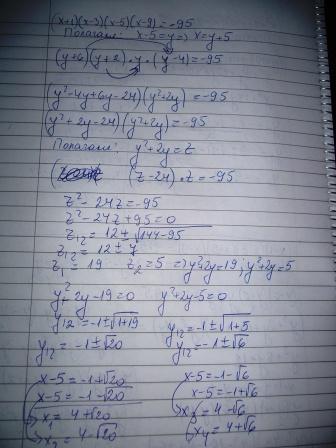 (x+1)(x-3)(x-5)(x-9)=-95
Полагаем: x-5=y=> x=y+5
(y+6)(y+2).y.(y-4)=-95
(y²-4y+6y-24)(y²+2y)=-95
(y²+2y-24)(y²+2y)=-95
Полагаем: y²+2y=z
(z-24).z=-95
z²-24z=-95
z²-24z+95=0
z₁₂=12±√144-95
z₁₂=12±7
z₁=19 z₂=5 =>y²+2y=19; y²+2y=5
y²+2y-19=0 y²+2y-5=0
y₁₂=-1±√1+19 y₁₂=-1±√1+5
y₁₂=-1±√20 y₁₂=-1±√6
x-5=-1+√20 x-5=-1-√6
x-5=-1-√20 x-5=-1+√6
x₁=4+√20 x₃=4-√6
x₂=4-√20 x₄=4+√6